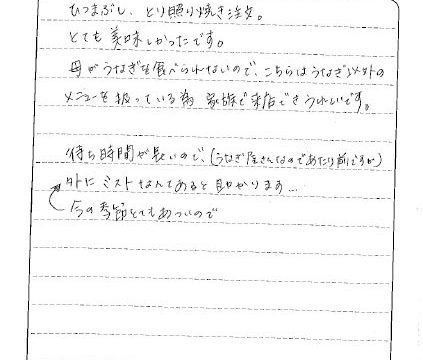 ひつまぶし、とり照り焼き注文。
とても美味しかったです。
母がうなぎを食べられないので、こちらはうなぎ以外の
メニューを扱っている為 家族で来店できうれしいです。
待ち時間が長いので、(うなぎ屋さんなのであたり前ですが)
外にミストなんてあると助かります…
今の季節とてもあついので